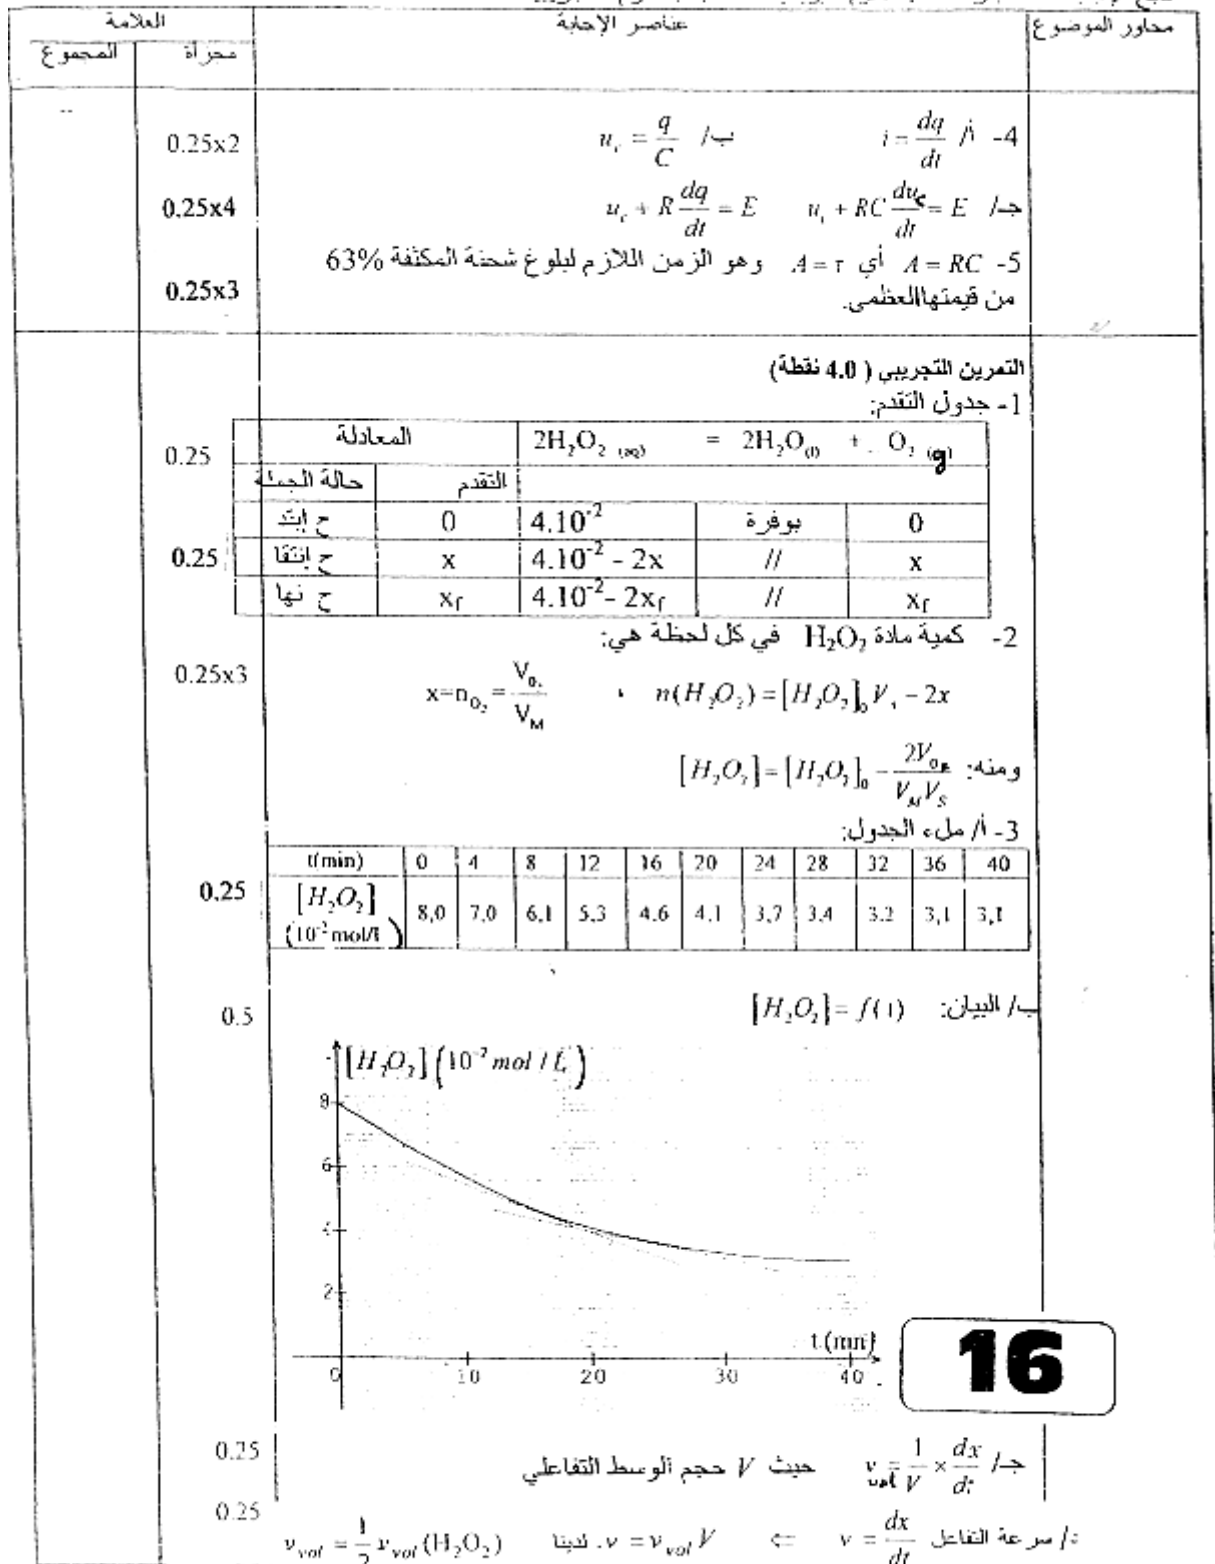 محاور الموضوع عناصر الإجابة العلامة
مجزأة المجموع
4- أ/ i = dq/dt ب/ u_c = q/C 0.25x2
جـ/ u_c + RC du_c/dt = E u_c + R dq/dt = E 0.25x4
5- A = RC أي A = τ. وهو الزمن اللازم لبلوغ شحنة المكثفة 63%
من قيمتها العظمى. 0.25x3
التمرين التجريبي ( 4.0 نقطة)
1- جدول التقدم:
المعادلة 2H₂O₂ (aq) = 2H₂O(l) + O₂ (g) 0.25
حالة الجملة التقدم
ح إبتد 0 4.10⁻² بوفرة 0
ح إنتقا x 4.10⁻² - 2x // x 0.25
ح نها x_f 4.10⁻² - 2x_f // x_f
2- كمية مادة H₂O₂ في كل لحظة هي:
n(H₂O₂) = [H₂O₂]₀ V_s - 2x ، x=n_O₂ = V_O₂/V_M 0.25x3
ومنه: [H₂O₂] = [H₂O₂]₀ - 2V_O₂/V_M V_S
3- أ/ ملء الجدول:
t(min) 0 4 8 12 16 20 24 28 32 36 40
[H₂O₂] (10⁻² mol/l) 8,0 7,0 6,1 5,3 4.6 4.1 3,7 3.4 3.2 3,1 3,1 0.25
ب/ البيان: [H₂O₂] = f(t) 0.5
[H₂O₂] (10⁻² mol / L)
8
6
4
2
t (mn)
0 10 20 30 40
16
جـ/ v_vol = 1/V × dx/dt حيث V حجم الوسط التفاعلي 0.25
د/ سرعة التفاعل v = dx/dt ⇐ v = v_vol V. لدينا v_vol = 1/2 v_vol (H₂O₂) 0.25